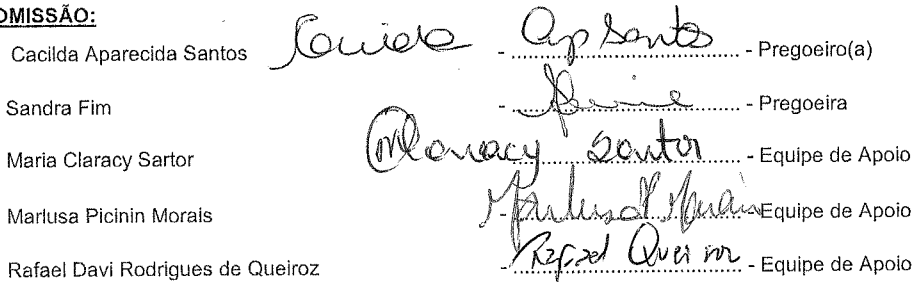 OMISSÃO:
Cacilda Aparecida Santos Ap Santos - Pregoeiro(a)
Sandra Fim - - Pregoeira
Maria Claracy Sartor Claracy Sartor - Equipe de Apoio
Marlusa Picinin Morais - Marlusa Morais - Equipe de Apoio
Rafael Davi Rodrigues de Queiroz - Rafael Queiroz - Equipe de Apoio